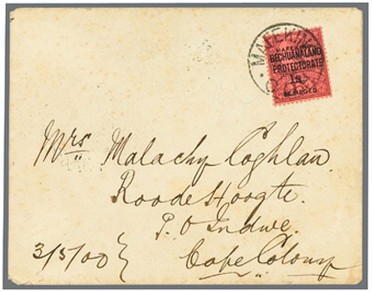 MAFEKING
MAFEKING
BECHUANALAND
PROTECTORATE
1s.
BESIEGED
Mrs Malachy Coghlan
Roode Hoogte.
P.O Indwe.
3/5/00 } Cape Colony